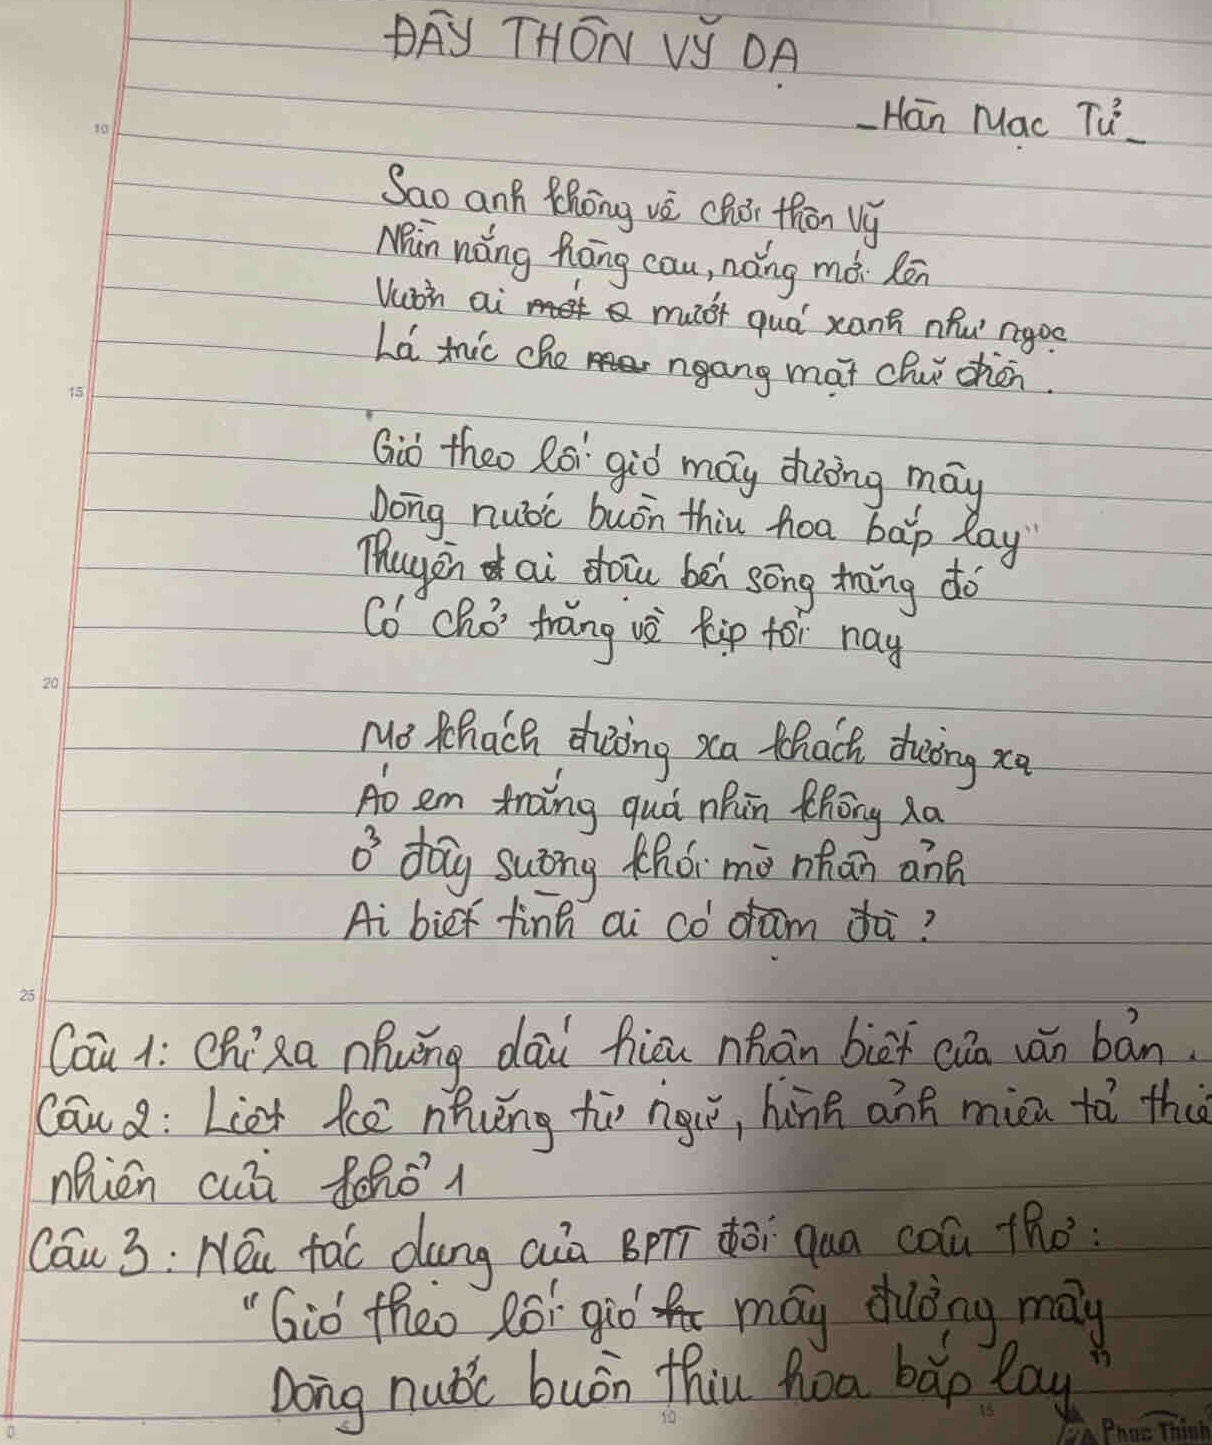 ĐÂY THÔN VỸ DẠ
- Hàn Mạc Tử -
10
Sao anh không về chơi thôn Vỹ
Nhìn nắng hàng cau, nắng mới lên
Vườn ai mướt quá xanh như ngọc
Lá trúc che ngang mặt chữ điền.
15
Gió theo lối gió mây đường mây
Dòng nước buồn thiu hoa bắp lay"
Thuyền ai đậu bến sông trăng đó
Có chở trăng về kịp tối nay
20
Mơ khách đường xa khách đường xa
Áo em trắng quá nhìn không ra
Ở đây sương khói mờ nhân ảnh
Ai biết tình ai có đậm đà?
25
Câu 1: Chỉ ra những dấu hiệu nhận biết của văn bản.
Câu 2: Liệt kê những từ ngữ, hình ảnh miêu tả thiê
nhiên của khổ 1
Câu 3: Nêu tác dụng của BPTT đối qua câu thơ:
"Gió theo lối gió mây đường mây
Dòng nước buồn thiu hoa bắp lay"
0 10 15 Phuc Thinh